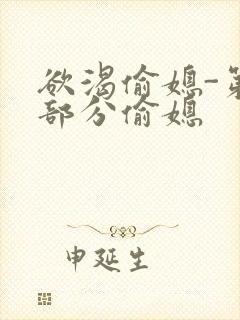 欲渴偷媳-第
部分偷媳
申延生